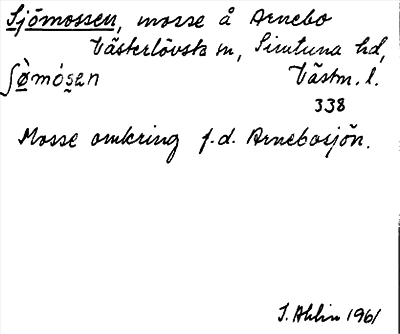 Sjömossen, mosse å Arnebo
Västerlövsta sn, Simtuna hd,
ʃö̀mósen Västm. l.
338
Mosse omkring f.d. Arnebosjön.
I. Ahlin 1961